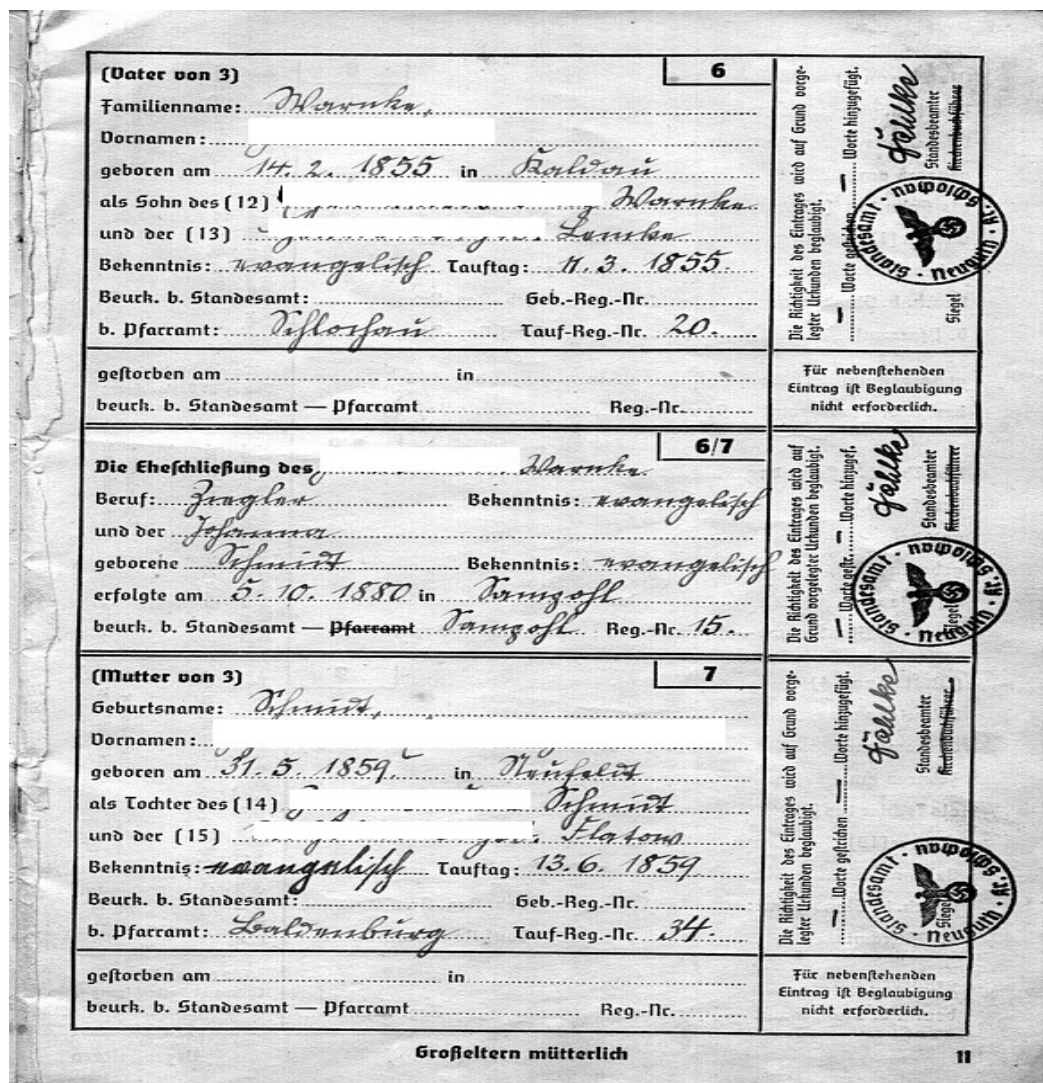 (Vater von 3) 6
Familienname: Warnke,
Vornamen:
geboren am 14. 2. 1855 in Kaldau
als Sohn des (12) Warnke
und der (13) Lemke
Bekenntnis: evangelisch Tauftag: 11. 3. 1855.
Beurk. b. Standesamt: Geb.-Reg.-Nr.
b. Pfarramt: Schlochau Tauf-Reg.-Nr. 20.
gestorben am in
beurk. b. Standesamt — Pfarramt Reg.-Nr.
Die Richtigkeit des Eintrages wird auf Grund vorge-
legter Urkunden beglaubigt.
— Worte gestrichen — Worte hinzugefügt.
Fahlke
Standesbeamter
Kirchenbuchführer
Siegel
Standesamt · Neuguth · Kr. Schlochau
Für nebenstehenden
Eintrag ist Beglaubigung
nicht erforderlich.
Die Eheschließung des Warnke 6/7
Beruf: Ziegler Bekenntnis: evangelisch
und der Johanna
geborene Schmidt Bekenntnis: evangelisch
erfolgte am 5. 10. 1880 in Sampohl
beurk. b. Standesamt — Pfarramt Sampohl Reg.-Nr. 15.
Die Richtigkeit des Eintrages wird auf
Grund vorgelegter Urkunden beglaubigt.
— Worte gestr. — Worte hinzugef.
Fahlke
Standesbeamter
Kirchenbuchführer
Siegel
Standesamt · Neuguth · Kr. Schlochau
(Mutter von 3) 7
Geburtsname: Schmidt,
Vornamen:
geboren am 31. 5. 1859. in Neufeldt
als Tochter des (14) Schmidt
und der (15) Flatow
Bekenntnis: evangelisch Tauftag: 13. 6. 1859
Beurk. b. Standesamt: Geb.-Reg.-Nr.
b. Pfarramt: Baldenburg Tauf-Reg.-Nr. 34.
gestorben am in
beurk. b. Standesamt — Pfarramt Reg.-Nr.
Die Richtigkeit des Eintrages wird auf Grund vorge-
legter Urkunden beglaubigt.
— Worte gestrichen — Worte hinzugefügt.
Fahlke
Standesbeamter
Kirchenbuchführer
Siegel
Standesamt · Neuguth · Kr. Schlochau
Für nebenstehenden
Eintrag ist Beglaubigung
nicht erforderlich.
Großeltern mütterlich 11